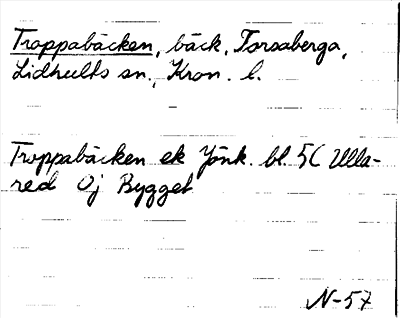 Troppabäcken, bäck, Torsaberga,
Lidhults sn., Kron. l.
Troppabäcken ek Jönk. bl. 5C Ulla-
red Öj Bygget
N-57